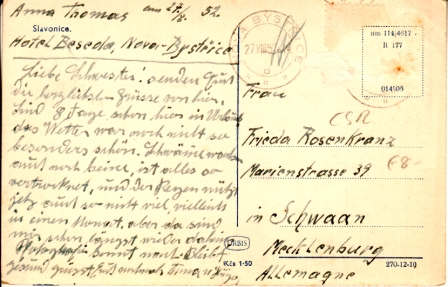 Anna Thomas am 27/8. 52.
Slavonice.
Hotel Beseda, Nova-Bystřice
Liebe Schwester! senden Euch
die herzlichsten Grüsse von hier.
Sind 8 Tage schon hier in Urlaub
das Wetter war noch nicht so
besonders schön. Schwämme wachsen
auch noch keine, ist alles so
vertrocknet, und der Regen nützt
jetz auch so nicht viel, vielleicht
in einen Monat, aber da sind
wir schon längst wieder daheim
sonst noch. Bleibt
gesund grüsst Euch nochmals
NOVÁ BYSTŘICE
27.VIII.52
um 114/4617
R 177
014609
Frau
ČSR
Frieda Rosenkranz
Marienstrasse 39
€8-
in Schwaan
Mecklenburg
Allemagne
ORBIS
Kčs 1·50
270-12-10